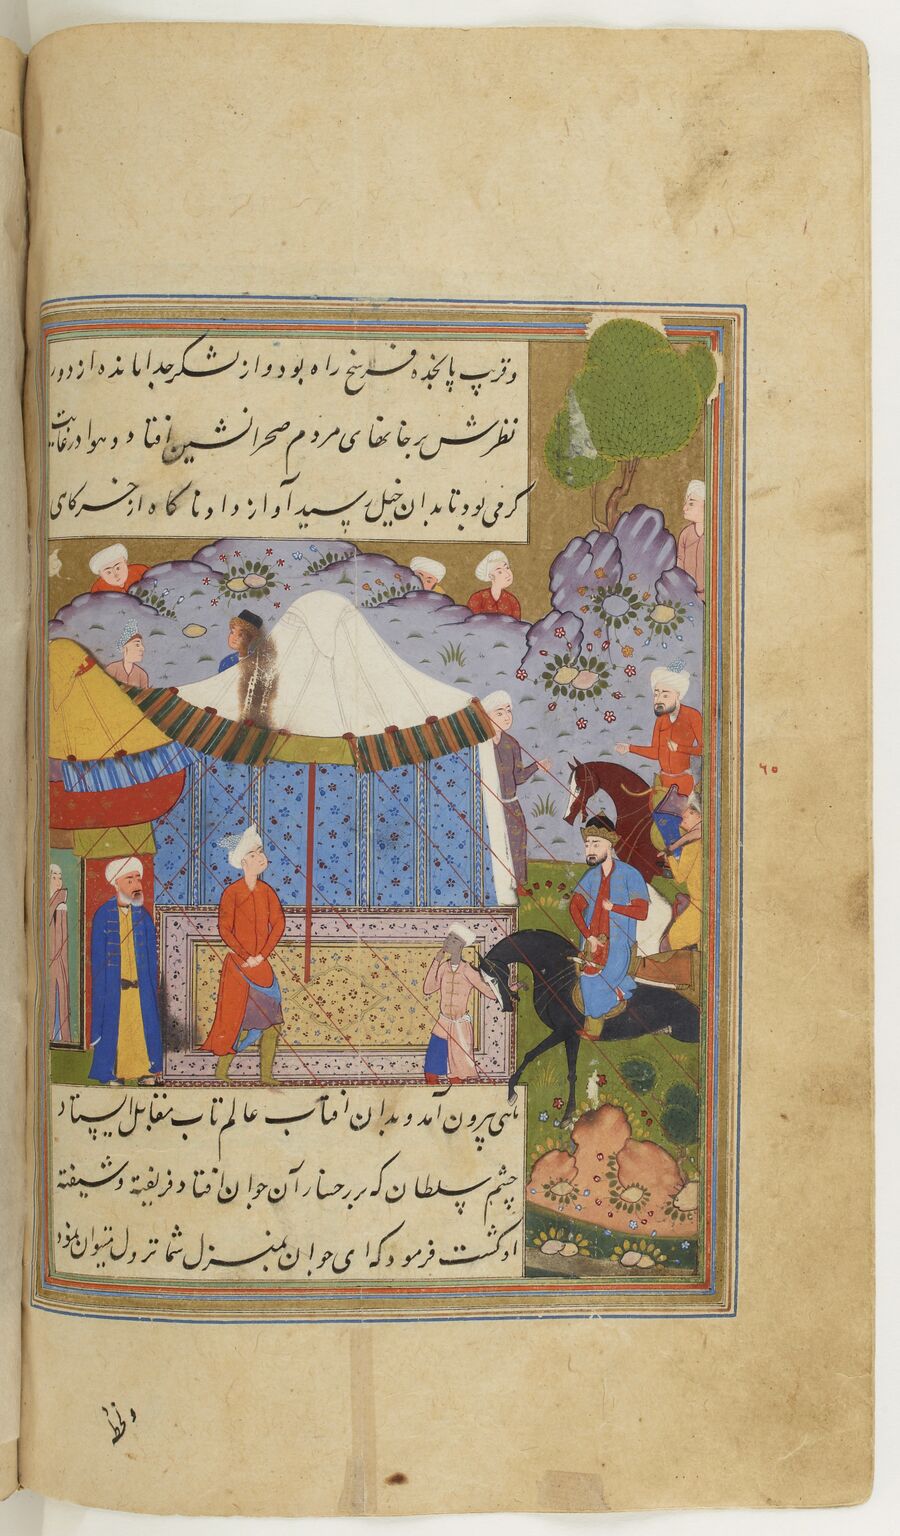 و قریب پانجده فرسنخ راه بود و از لشکر جدا مانده از دور
نظرش بر خانهای مردم صحرا نشین افتاد و هوا در غایت
گرمی بود تا بدان خیل رسید آواز داد ناگاه از خرگاهی
بیرون آمد و بدان افتاب عالم تاب مقابل ایستاد
چشم سلطان که بر رخسار آن جوان افتاد فریفته و شیفته
او گشت فرمود که ای جوان بمنزل شما نزول میتوان نمود
۶۵